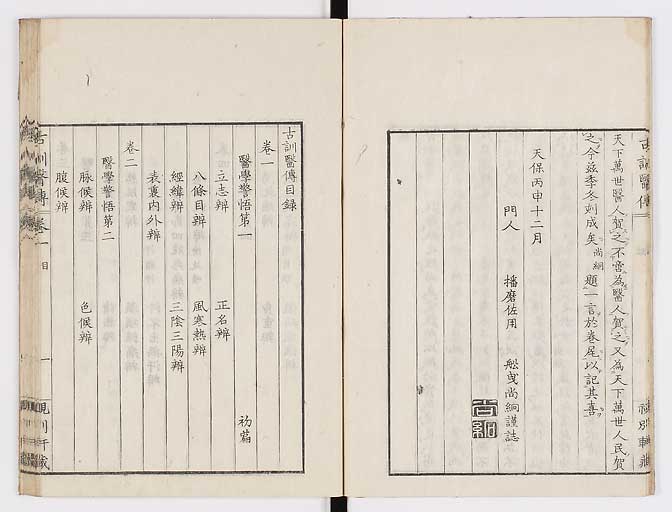 古訓醫傳
天下萬世醫人賀之不啻為醫人賀之又為天下萬世人民賀
之今茲季冬刻成矣尚絅題一言於卷尾以記其喜
天保丙申十二月
門人 播磨佐用 尚絅謹誌
尚絅
古訓醫傳目録
卷一
醫學警悟第一 初篇
立志辨 正名辨
八條目辨 風寒熱辨
經緯辨 三陰三陽辨
表裏内外辨
卷二
醫學警悟第二
脉候辨 色候辨
腹候辨
古訓醫傳 卷一 目 一